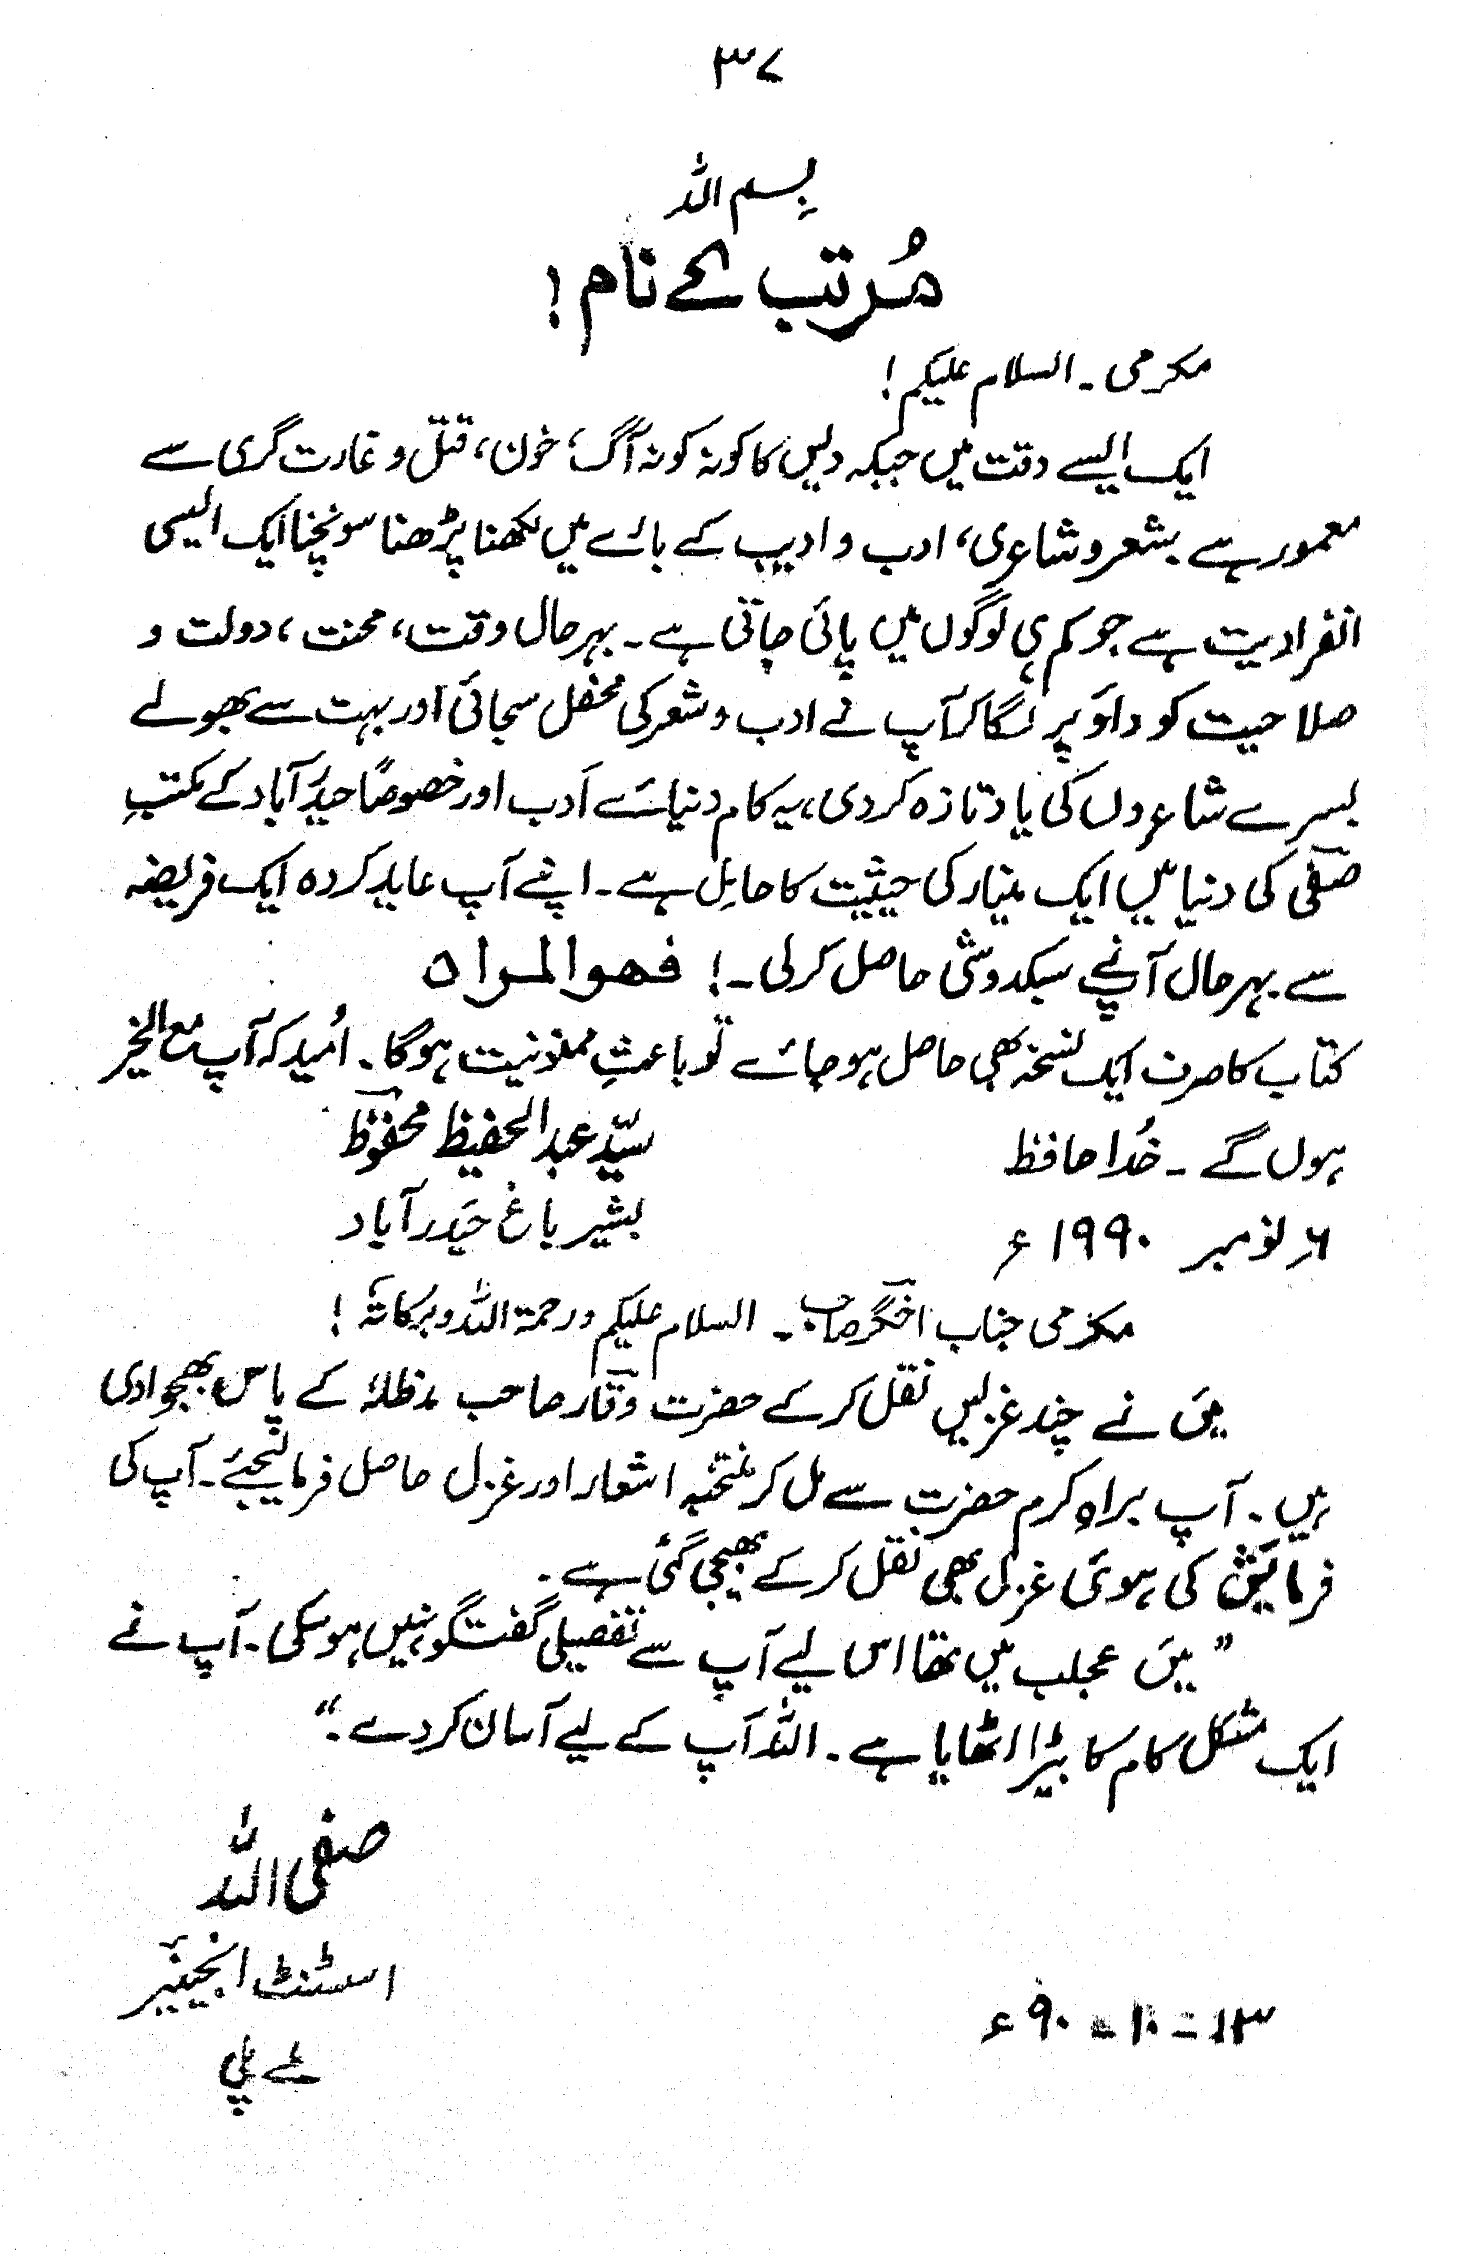 ۳۷
بسم اللہ
مُرتب کے نام!
مکرمی۔ السلام علیکم!
ایک ایسے وقت میں جبکہ دیس کا کونہ کونہ آگ، خون، قتل و غارت گری سے
معمور ہے شعر و شاعری، ادب و ادیب کے بارے میں لکھنا پڑھنا سونچنا ایک ایسی
انفرادیت ہے جو کم ہی لوگوں میں پائی جاتی ہے۔ بہرحال وقت، محنت، دولت و
صلاحیت کو داؤ پر لگا کر آپ نے ادب و شعر کی محفل سجائی اور بہت سے بھولے
بسرے شاعروں کی یاد تازہ کردی، یہ کام دنیائے اَدب اور خصوصاً حیدرآباد کے مکتبِ
صفی کی دنیا میں ایک مینار کی حیثیت کا حامِل ہے۔ اپنے آپ عاید کردہ ایک فریضہ
سے بہرحال آپنے سبکدوشی حاصل کرلی۔! فھوالمراہ
کتاب کا صرف ایک نسخہ بھی حاصل ہوجائے تو باعثِ ممنونیت ہوگا۔ اُمید کہ آپ مع الخیر
ہوں گے۔ خُدا حافظ
سیّد عبدالحفیظ محفوظ
بشیر باغ حیدرآباد
۶ر نومبر ۱۹۹۰ء
مکرمی جناب اخگر صاحب۔ السلام علیکم ورحمۃ اللہ وبرکاتہٗ!
میں نے چند غزلیں نقل کرکے حضرت وقار صاحب مدظلہٗ کے پاس بھجوادی
ہیں۔ آپ براہِ کرم حضرت سے مل کر منتخبہ اشعار اور غزل حاصل فرمالیجئے۔ آپ کی
فرمائش کی ہوئی غزل بھی نقل کرکے بھیجی گئی ہے۔
”میں عجلت میں تھا اس لیے آپ سے تفصیلی گفتگو نہیں ہوسکی۔ آپ نے
ایک مشکل کام کا بیڑا اٹھایا ہے۔ اللہ آپ کے لیے آسان کردے۔“
صفی اللہ
اسٹنٹ انجینیر
ٹے پلی
۱۳ - ۱۰ - ۹۰ء